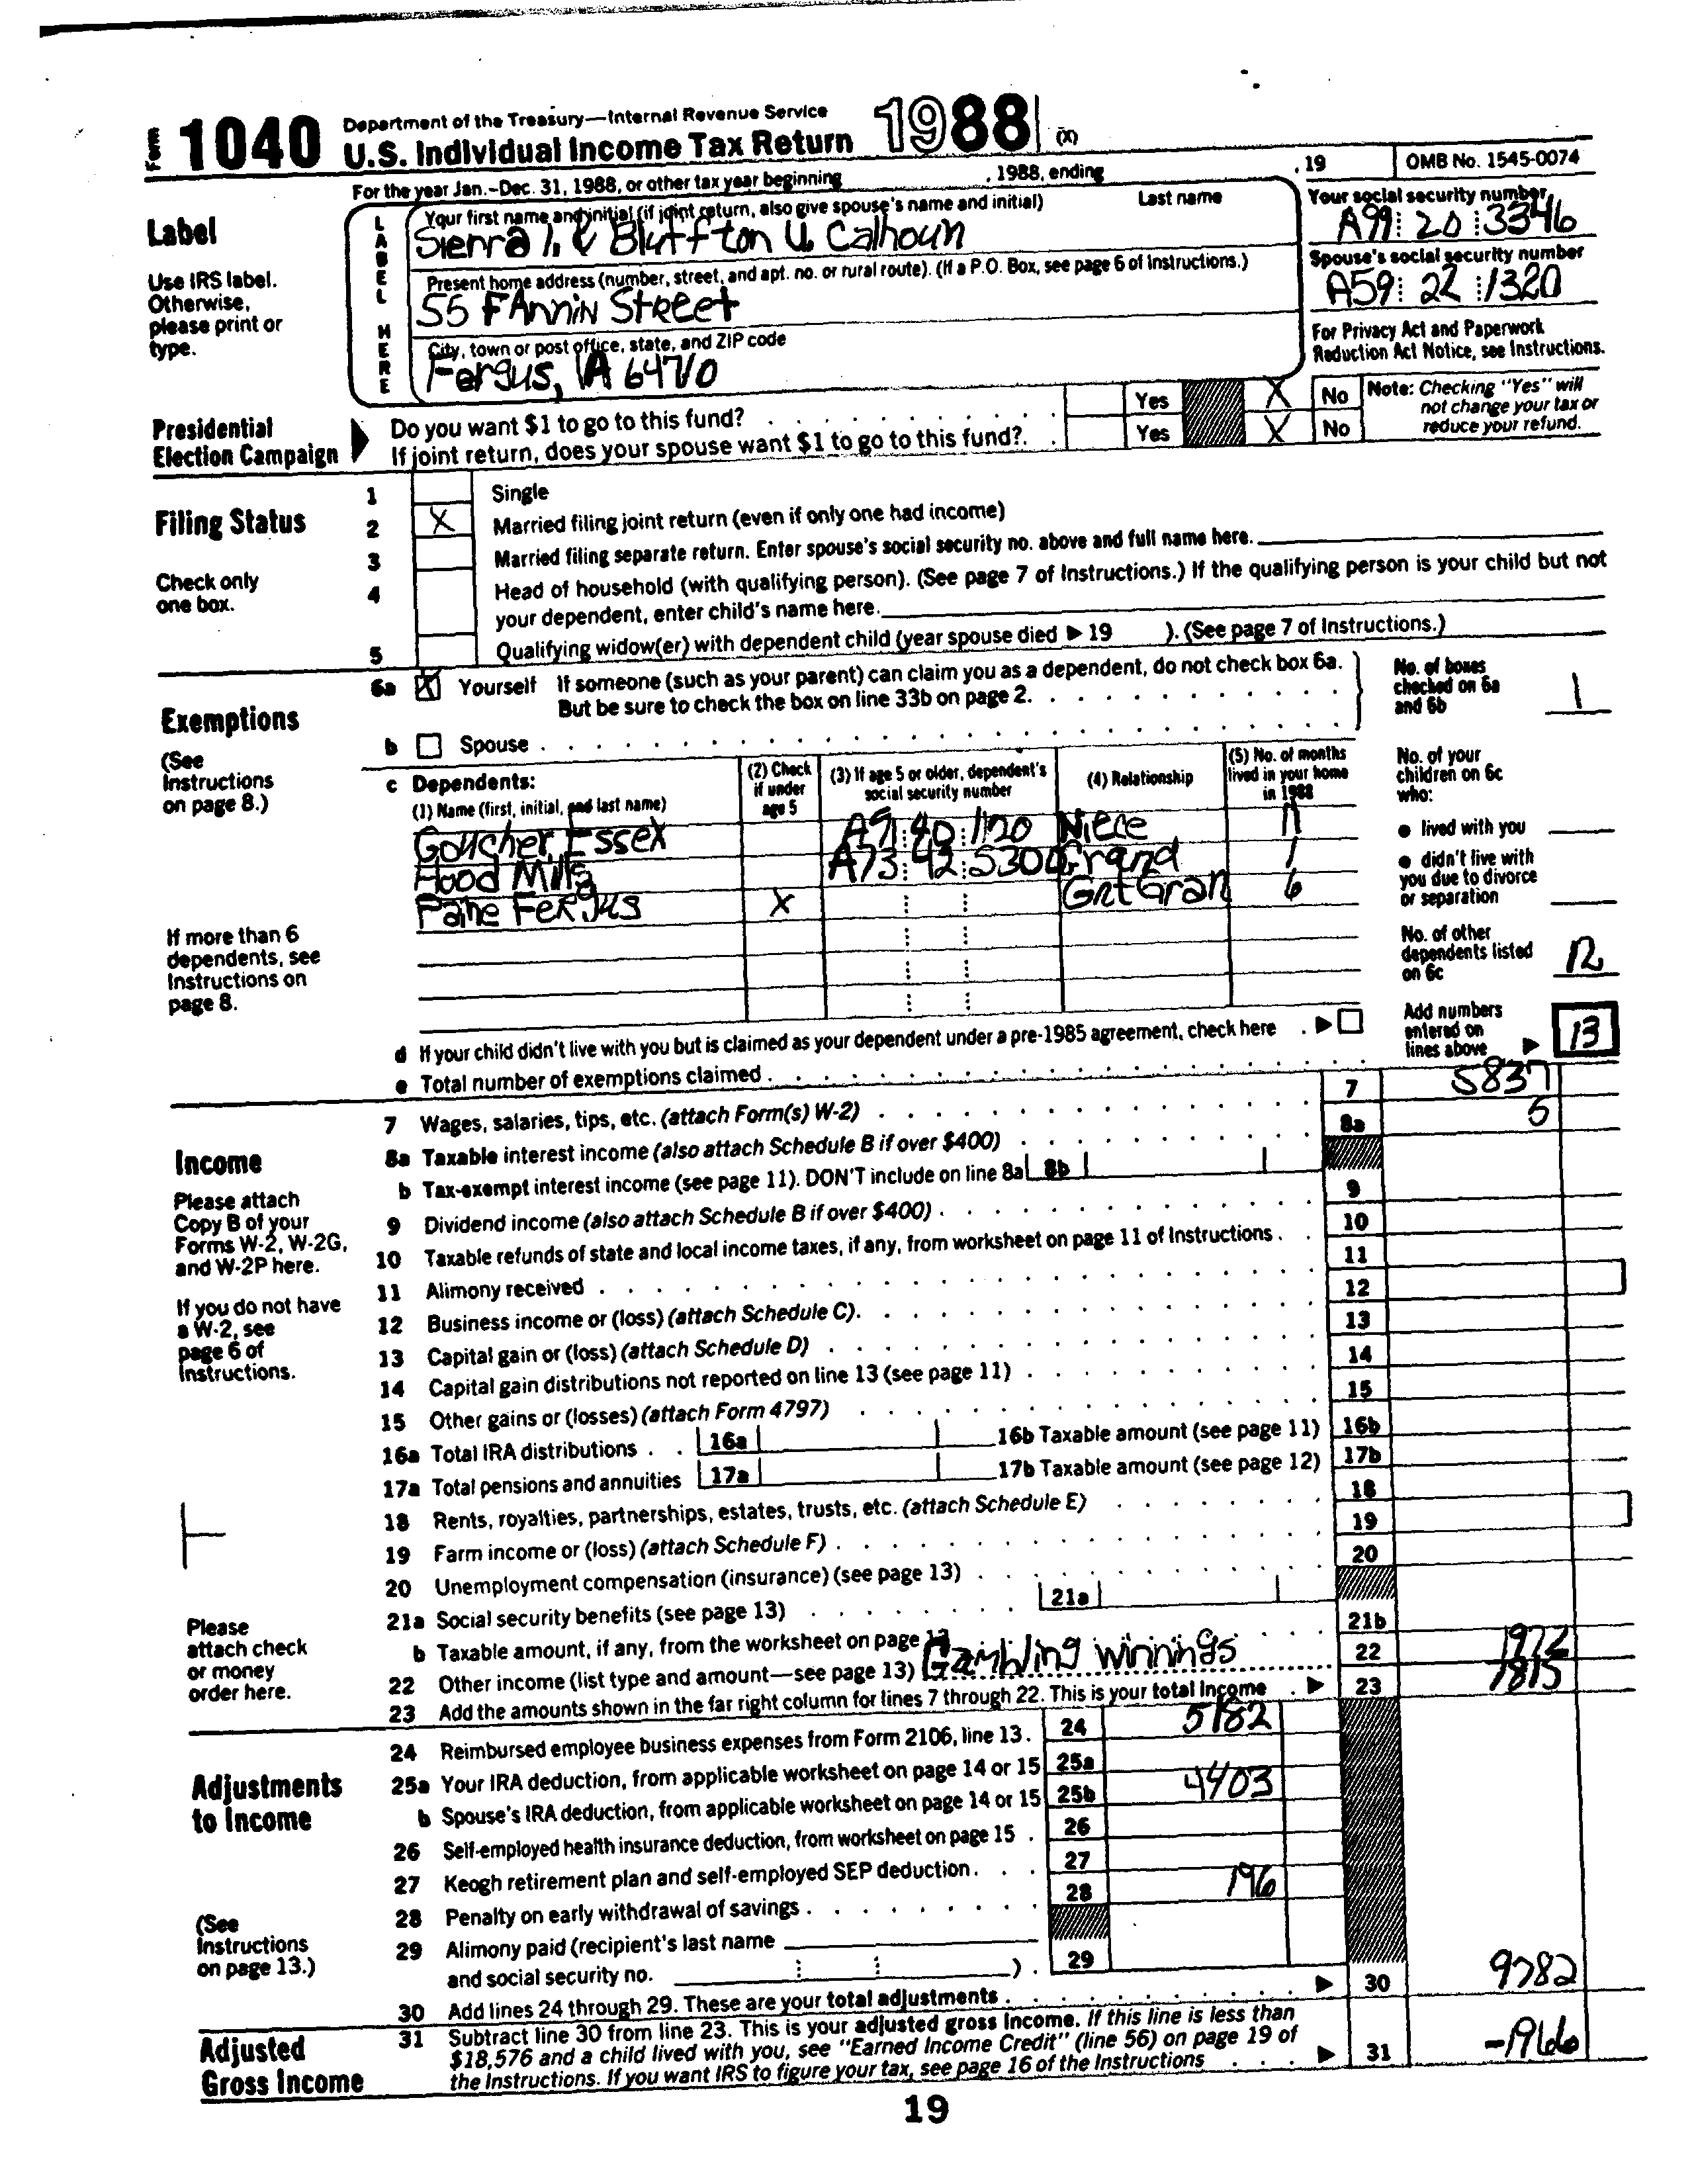 Form 1040 Department of the Treasury—Internal Revenue Service
U.S. Individual Income Tax Return 1988 (X)
For the year Jan.-Dec. 31, 1988, or other tax year beginning , 1988, ending , 19 OMB No. 1545-0074
Label
Use IRS label.
Otherwise,
please print or
type.
LABEL HERE
Your first name and initial (if joint return, also give spouse's name and initial) Last name
Sierra I. & Bluffton U. Calhoun
Your social security number
A99 20 3346
Present home address (number, street, and apt. no. or rural route). (If a P.O. Box, see page 6 of Instructions.)
55 FAnnin Street
Spouse's social security number
A59 22 1320
City, town or post office, state, and ZIP code
Fergus, IA 64710
For Privacy Act and Paperwork
Reduction Act Notice, see Instructions.
Presidential
Election Campaign
Do you want $1 to go to this fund? Yes X No
If joint return, does your spouse want $1 to go to this fund? Yes X No
Note: Checking "Yes" will
not change your tax or
reduce your refund.
Filing Status
Check only
one box.
1 Single
2 X Married filing joint return (even if only one had income)
3 Married filing separate return. Enter spouse's social security no. above and full name here.
4 Head of household (with qualifying person). (See page 7 of Instructions.) If the qualifying person is your child but not
your dependent, enter child's name here.
5 Qualifying widow(er) with dependent child (year spouse died ▶ 19 ). (See page 7 of Instructions.)
Exemptions
(See
Instructions
on page 8.)
If more than 6
dependents, see
Instructions on
page 8.
6a X Yourself If someone (such as your parent) can claim you as a dependent, do not check box 6a.
But be sure to check the box on line 33b on page 2.
b Spouse
No. of boxes
checked on 6a
and 6b 1
c Dependents:
(1) Name (first, initial, and last name)
(2) Check
if under
age 5
(3) If age 5 or older, dependent's
social security number
(4) Relationship
(5) No. of months
lived in your home
in 1988
Goucher Essex A91 40 1120 Niece
Flood Mills A73 42 5300 Grand 1
Paine Fergus X Grt Gran 6
No. of your
children on 6c
who:
● lived with you
● didn't live with
you due to divorce
or separation
No. of other
dependents listed
on 6c 12
Add numbers
entered on
lines above ▶ 13
d If your child didn't live with you but is claimed as your dependent under a pre-1985 agreement, check here ▶
e Total number of exemptions claimed
Income
Please attach
Copy B of your
Forms W-2, W-2G,
and W-2P here.
If you do not have
a W-2, see
page 6 of
Instructions.
Please
attach check
or money
order here.
7 Wages, salaries, tips, etc. (attach Form(s) W-2) 7 5837
8a Taxable interest income (also attach Schedule B if over $400) 8a 5
b Tax-exempt interest income (see page 11). DON'T include on line 8a 8b
9 Dividend income (also attach Schedule B if over $400) 9
10 Taxable refunds of state and local income taxes, if any, from worksheet on page 11 of Instructions 10
11 Alimony received 11
12 Business income or (loss) (attach Schedule C) 12
13 Capital gain or (loss) (attach Schedule D) 13
14 Capital gain distributions not reported on line 13 (see page 11) 14
15 Other gains or (losses) (attach Form 4797) 15
16a Total IRA distributions 16a 16b Taxable amount (see page 11) 16b
17a Total pensions and annuities 17a 17b Taxable amount (see page 12) 17b
18 Rents, royalties, partnerships, estates, trusts, etc. (attach Schedule E) 18
19 Farm income or (loss) (attach Schedule F) 19
20 Unemployment compensation (insurance) (see page 13) 20
21a Social security benefits (see page 13) 21a
b Taxable amount, if any, from the worksheet on page 13 21b
22 Other income (list type and amount—see page 13) Gambling winnings 22 1972
23 Add the amounts shown in the far right column for lines 7 through 22. This is your total income ▶ 23 7815
Adjustments
to Income
(See
Instructions
on page 13.)
24 Reimbursed employee business expenses from Form 2106, line 13. 24 5182
25a Your IRA deduction, from applicable worksheet on page 14 or 15 25a
b Spouse's IRA deduction, from applicable worksheet on page 14 or 15 25b 4403
26 Self-employed health insurance deduction, from worksheet on page 15 26
27 Keogh retirement plan and self-employed SEP deduction 27
28 Penalty on early withdrawal of savings 28 196
29 Alimony paid (recipient's last name
and social security no. ) 29
30 Add lines 24 through 29. These are your total adjustments ▶ 30 9782
Adjusted
Gross Income
31 Subtract line 30 from line 23. This is your adjusted gross income. If this line is less than
$18,576 and a child lived with you, see "Earned Income Credit" (line 56) on page 19 of
the Instructions. If you want IRS to figure your tax, see page 16 of the Instructions ▶ 31 -1966
19